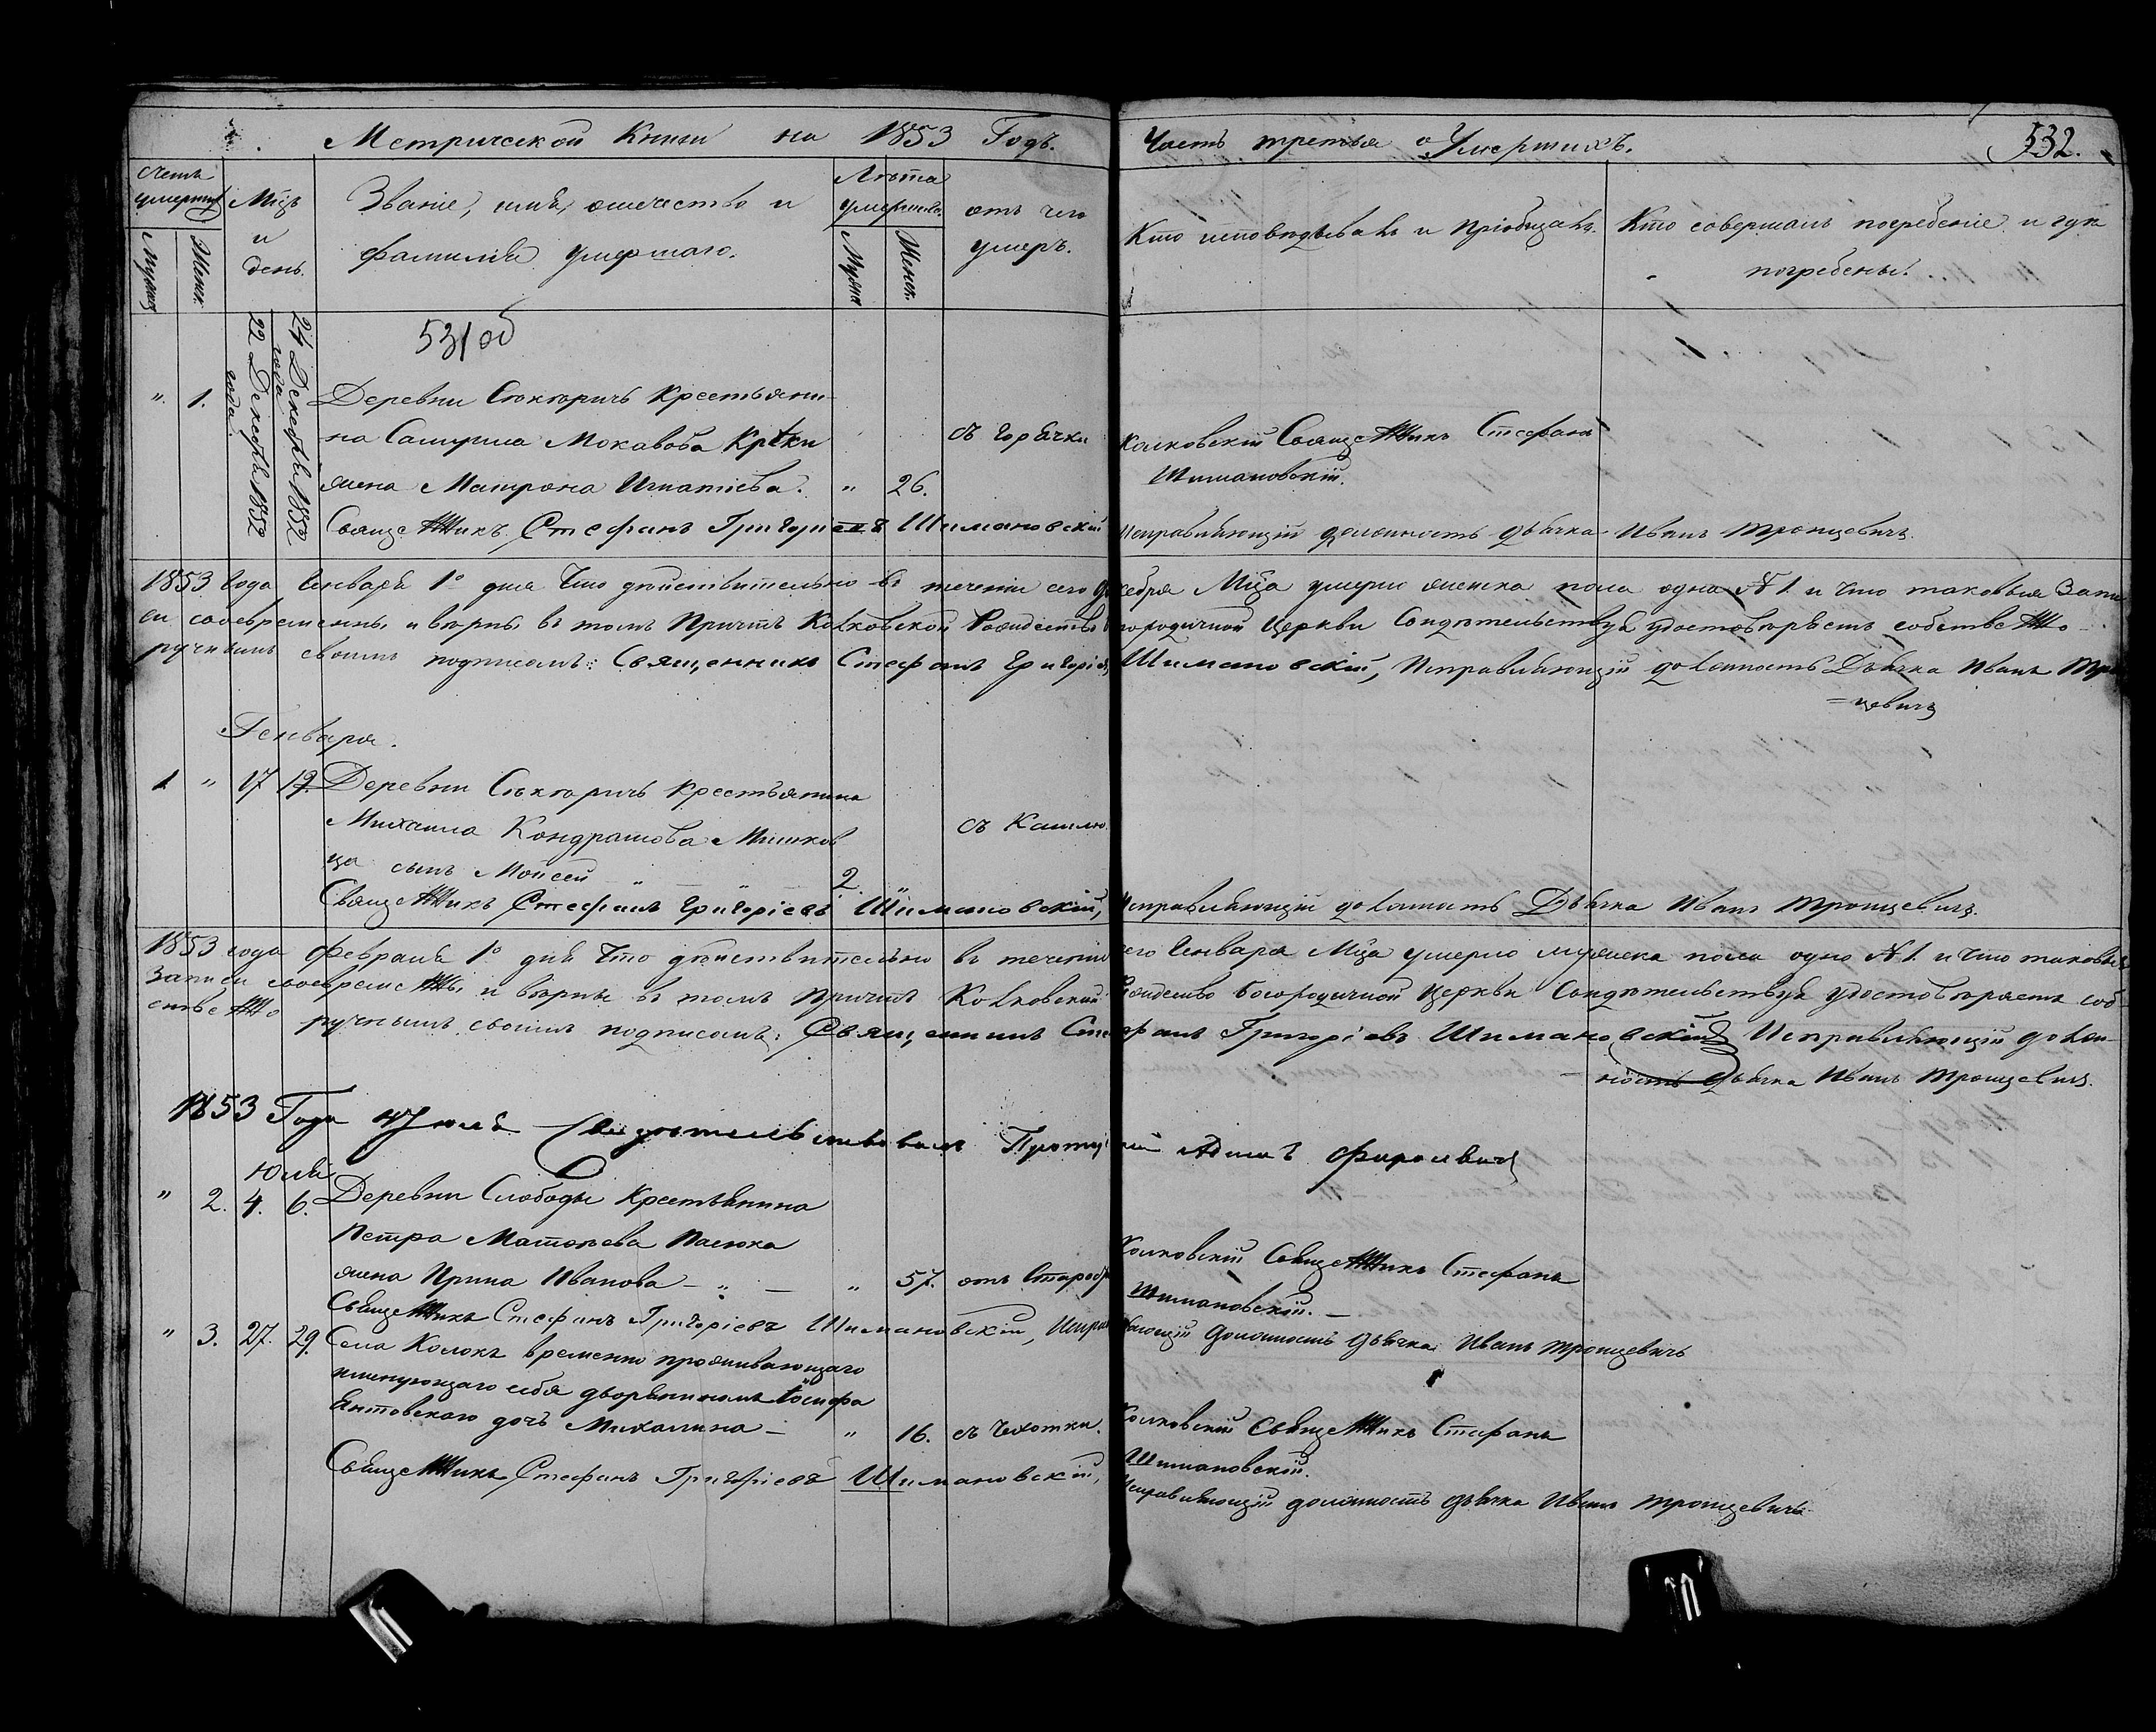 Метрической Книги на 1853 Годъ.
Часть третья о Умершихъ.
532.
Счетъ умершихъ
Мцъ и день.
Званіе, имя, отчество и фамилія умершаго.
Лѣта умершаго.
отъ чего умеръ.
Кто исповѣдывалъ и пріобщалъ.
Кто совершалъ погребеніе и гдѣ погребены.
Мужеск
Женск.
Мужеск
Женск.
531 об
22 Декабря 1852 года.
24 Декабря 1852 года
" 1. Деревни
Крестьяни-
на Самуила
съ горячки
Колковскій СвященНикъ Стефанъ
жена Матрона Игнатіева. " 26.
Шимановскій.
СвященНикъ Стефанъ Григоріевъ Шимановскій
Исправляющій должность дьячка Иванъ Тронцевичъ.
1853 Года Генваря 1º дня Что дѣйствительно въ теченіи сего Декабря Мца умерло женска пола одна № 1. и что таковыя Запи
си своевременны и вѣрны въ томъ Причтъ Колковской Рождество Богородичной Церкви Свидѣтельствуя удостовѣряетъ собствеННо-
ручнымъ своимъ подписомъ: Священникъ Стефанъ Григоріев Шимановскій, Исправляющій должность Дьячка Иванъ Трон
=цевичъ
Генваря.
1 " 17 19. Деревни
Крестьянина
Михаила Кондратова Мишков
съ Кашлю.
ца сынъ Мойсей - " - " 2.
СвященНикъ Стефанъ Григоріевъ Шимановскій, Исправляющій должность Дьячка Иванъ Тронцевичъ.
1853 года Февраля 1º дня Что дѣйствительно въ теченіи сего Генваря Мца умерло мужеска пола одно № 1. и что таковыя
Записи своевремеННы и вѣрны въ томъ Причтъ Колковской Рождество Богородичной Церкви Свидѣтельствуя удостовѣряетъ соб-
ствеННо ручнымъ своимъ подписомъ: Священникъ Стефанъ Григоріевъ Шимановскій Исправляющій долж-
ность Дьячка Иванъ Тронцевичъ.
1853 Года Іюля Свидѣтельствовалъ
Юля
" 2. 4. 6. Деревни Слободы Крестьянина
Петра Матвѣева Пасюка
жена Ирина Иванова - " - " 57. отъ Старос
Колковскій СвященНикъ Стефанъ
Шимановскій. -
СвященНикъ Стефанъ Григоріевъ Шимановскій, Исправляющій Должность Дьячка Иванъ Тронцевичъ
" 3. 27. 29. Села Колокъ временно проживающаго
именующаго себя дворяниномъ Іосифа
дочь Михалина - " 16. съ Чахотки.
Колковскій СвященНикъ Стефанъ
Шимановскій.
СвященНикъ Стефанъ Григоріевъ Шимановскій,
Исправляющій должность дьячка Иванъ Тронцевичъ